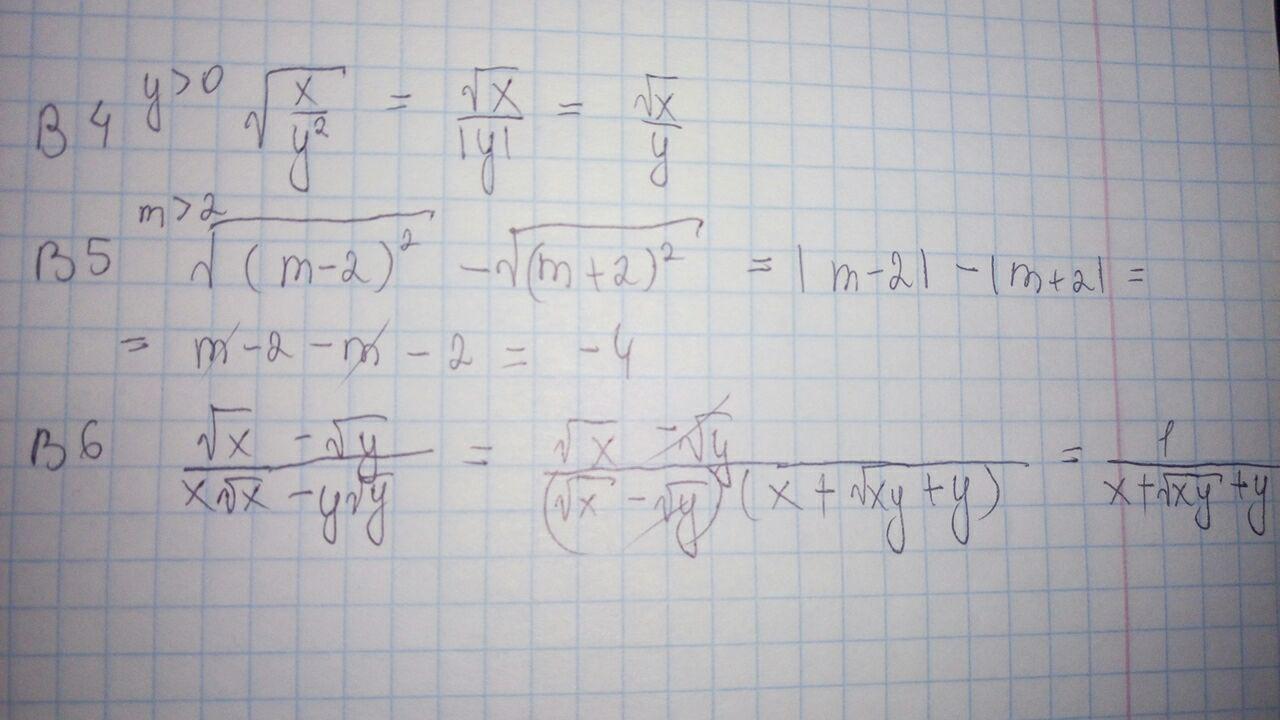 В 4 y>0 √(x/y²) = √x/|y| = √x/y
m>2
В 5 √((m-2)²) - √((m+2)²) = |m-2| - |m+2| =
= m - 2 - m - 2 = -4
В 6 (√x - √y)/(x√x - y√y) = (√x - √y)/((√x - √y)(x + √xy + y)) = 1/(x + √xy + y)